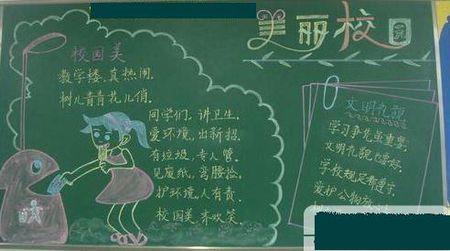 美丽校园
校园美
教学楼,真热闹,
树儿青青花儿俏。
同学们,讲卫生,
爱环境,出新招。
有垃圾,专人管,
见废纸,弯腰捡,
护环境,人有责,
校园美,来欢笑。
文明礼貌
学习争先虽重要,
文明礼貌也需好。
学校规定都遵守,
爱护公物